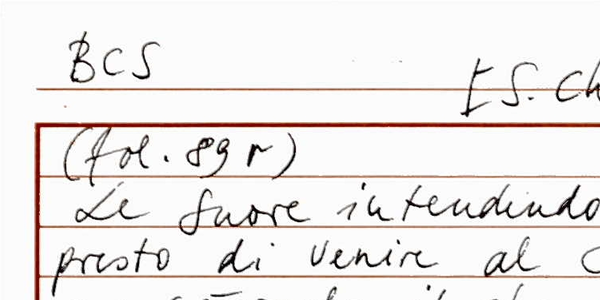 BCS
[S. Ch
(fol. 89 r)
Le suore intendendo
presto di venire al C